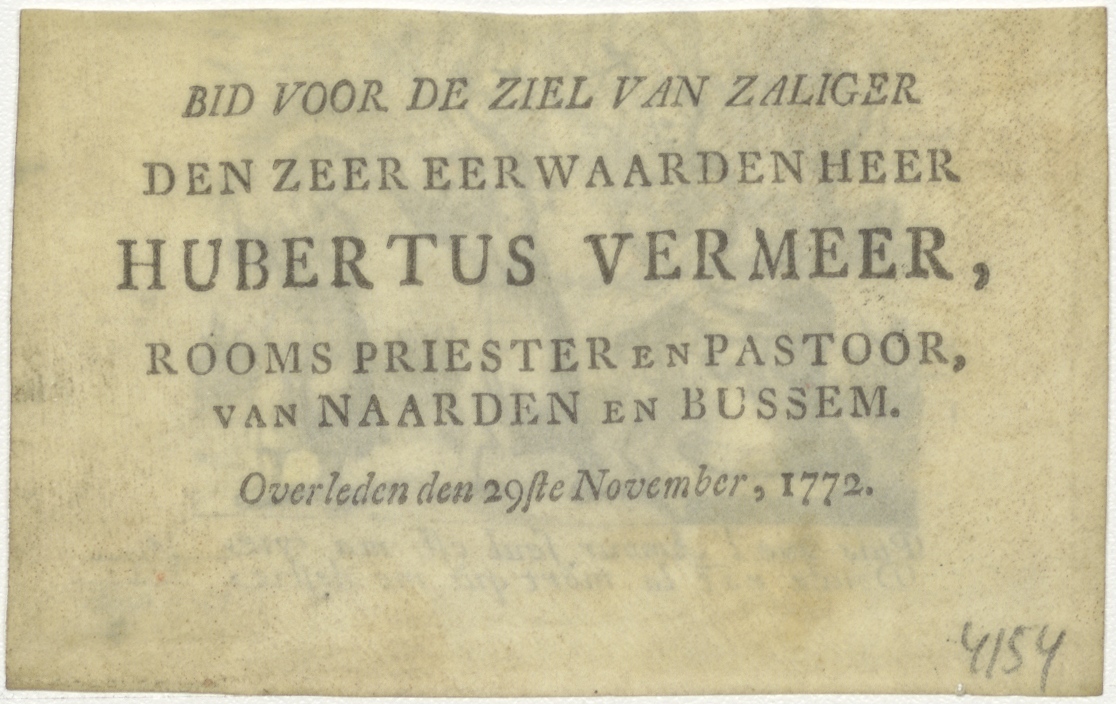 BID VOOR DE ZIEL VAN ZALIGER
DEN ZEER EERWAARDEN HEER
HUBERTUS VERMEER,
ROOMS PRIESTER EN PASTOOR,
VAN NAARDEN EN BUSSEM.
Overleden den 29ſte November, 1772.
4154